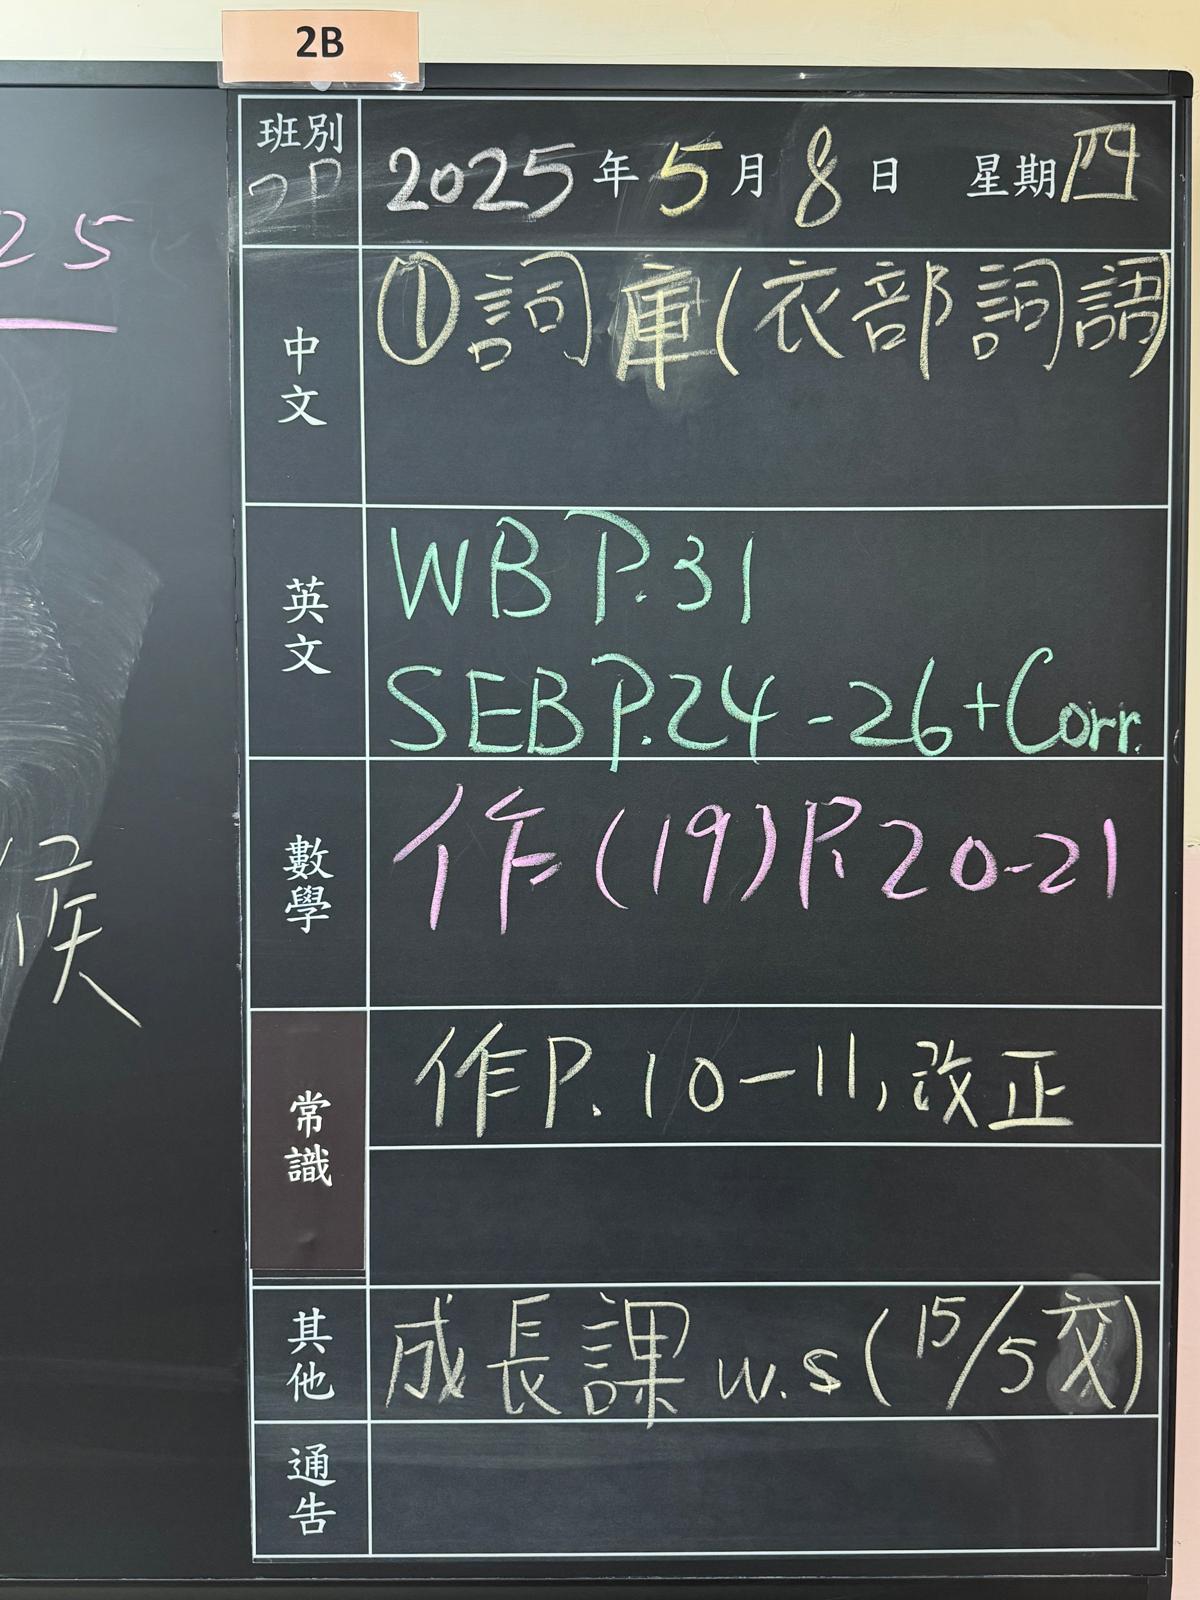 2B
班別
2025年5月8日 星期四
25
中文
①詞庫(衣部詞語)
英文
WB P.31
SEB P.24-26+Corr.
數學
作(19)P.20-21
候
常識
作P.10-11,改正
其他
成長課 w.s(15/5交)
通告